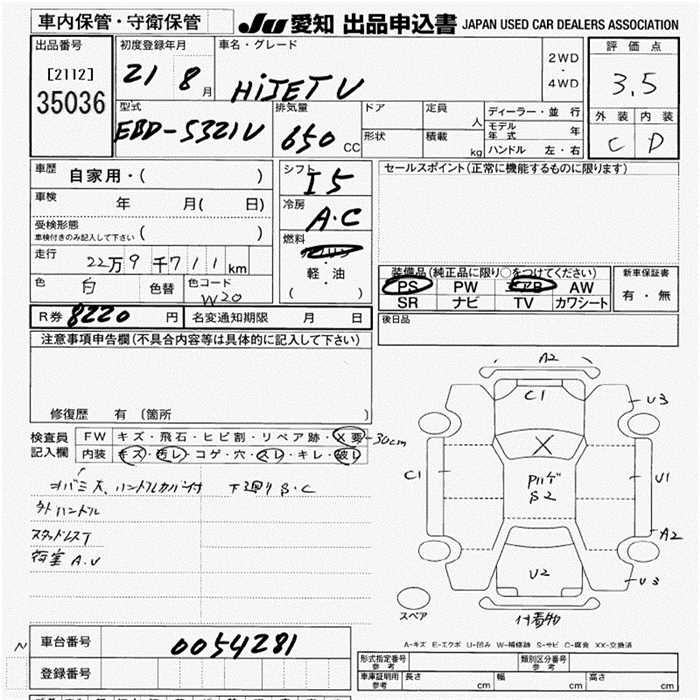 車内保管・守衛保管 JU 愛知 出品申込書 JAPAN USED CAR DEALERS ASSOCIATION
出品番号 初度登録年月 車名・グレード 2WD・4WD 評価点
[2112] 21 8月 HiJET V 3.5
35036
型式 排気量 ドア 定員 人 ディーラー・並行 外装 内装
EBD-S321V 650 CC 形状 積載 kg モデル年式 年 C D
ハンドル 左・右
車歴 自家用・( ) シフト I5 セールスポイント(正常に機能するものに限ります)
車検 年 月( 日) 冷房 A.C
受検形態 車検付きのみ記入して下さい ( ) 燃料
走行 22万9千711km 軽・油
装備品(純正品に限り○をつけてください) 新車保証書
色 白 色替 色コード W20 ( ) PS PW AB AW 有・無
SR ナビ TV カワシート
R券 8220 円 名変通知期限 月 日 後日品
注意事項申告欄(不具合内容等は具体的に記入して下さい)
修復歴 有(箇所 )
検査員記入欄 FW キズ・飛石・ヒビ割・リペア跡・X要 -30cm
内装 キズ・汚レ・コゲ・穴・スレ・キレ・破レ
ハンドルカバー付 下廻りS・C
外ハンドル
スタッドレスT
荷室 A.U
A2
C1
U3
X
C1
Pハゲ
S2
U1
A2
U2
U3
スペア
付着物
A-キズ E-エクボ U-凹み W-補修跡 S-サビ C-腐食 XX-交換済
N
車台番号 0054281
登録番号
形式指定番号 参考 類別区分番号 参考
車庫証明用 参考 長さ cm 幅 cm 高さ cm